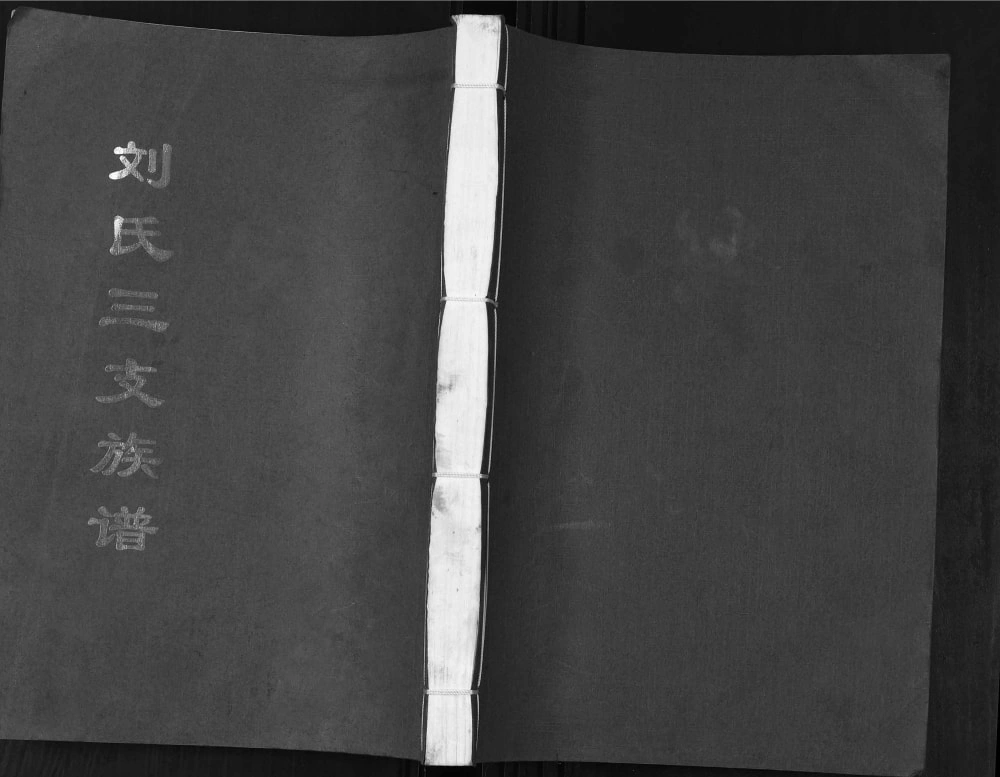 刘氏三支族谱